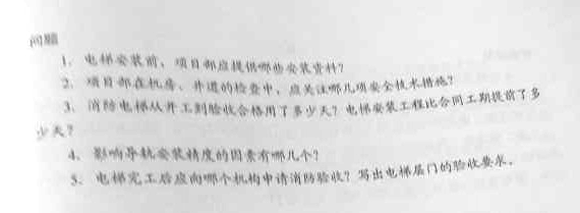 问题
1、电梯安装前，项目部应提供哪些安装资料？
2、项目部在机房、井道的检查中，应关注哪几项安全技术措施？
3、消防电梯从开工到验收合格用了多少天？电梯安装工程比合同工期提前了多
少天？
4、影响导轨安装精度的因素有哪几个？
5、电梯完工后应向哪个机构申请消防验收？写出电梯层门的验收要求。